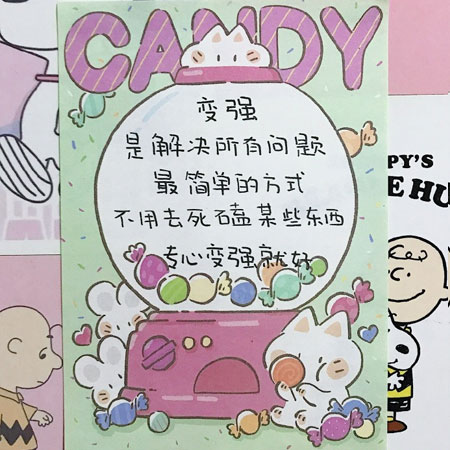 CANDY
变强
是解决所有问题
最简单的方式
不用去死磕某些东西
专心变强就好
PY'S
E HU